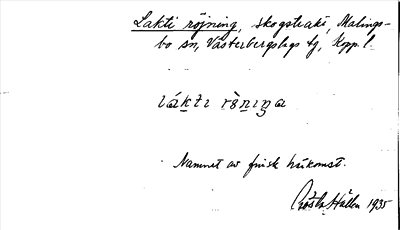 Lakti röjning, skogstrakt, Malings-
bo sn, Västerbergslags tg, Kopp. l.
lákti rö̀niŋa
Namnet av finsk härkomst.
Gösta Hallén 1935